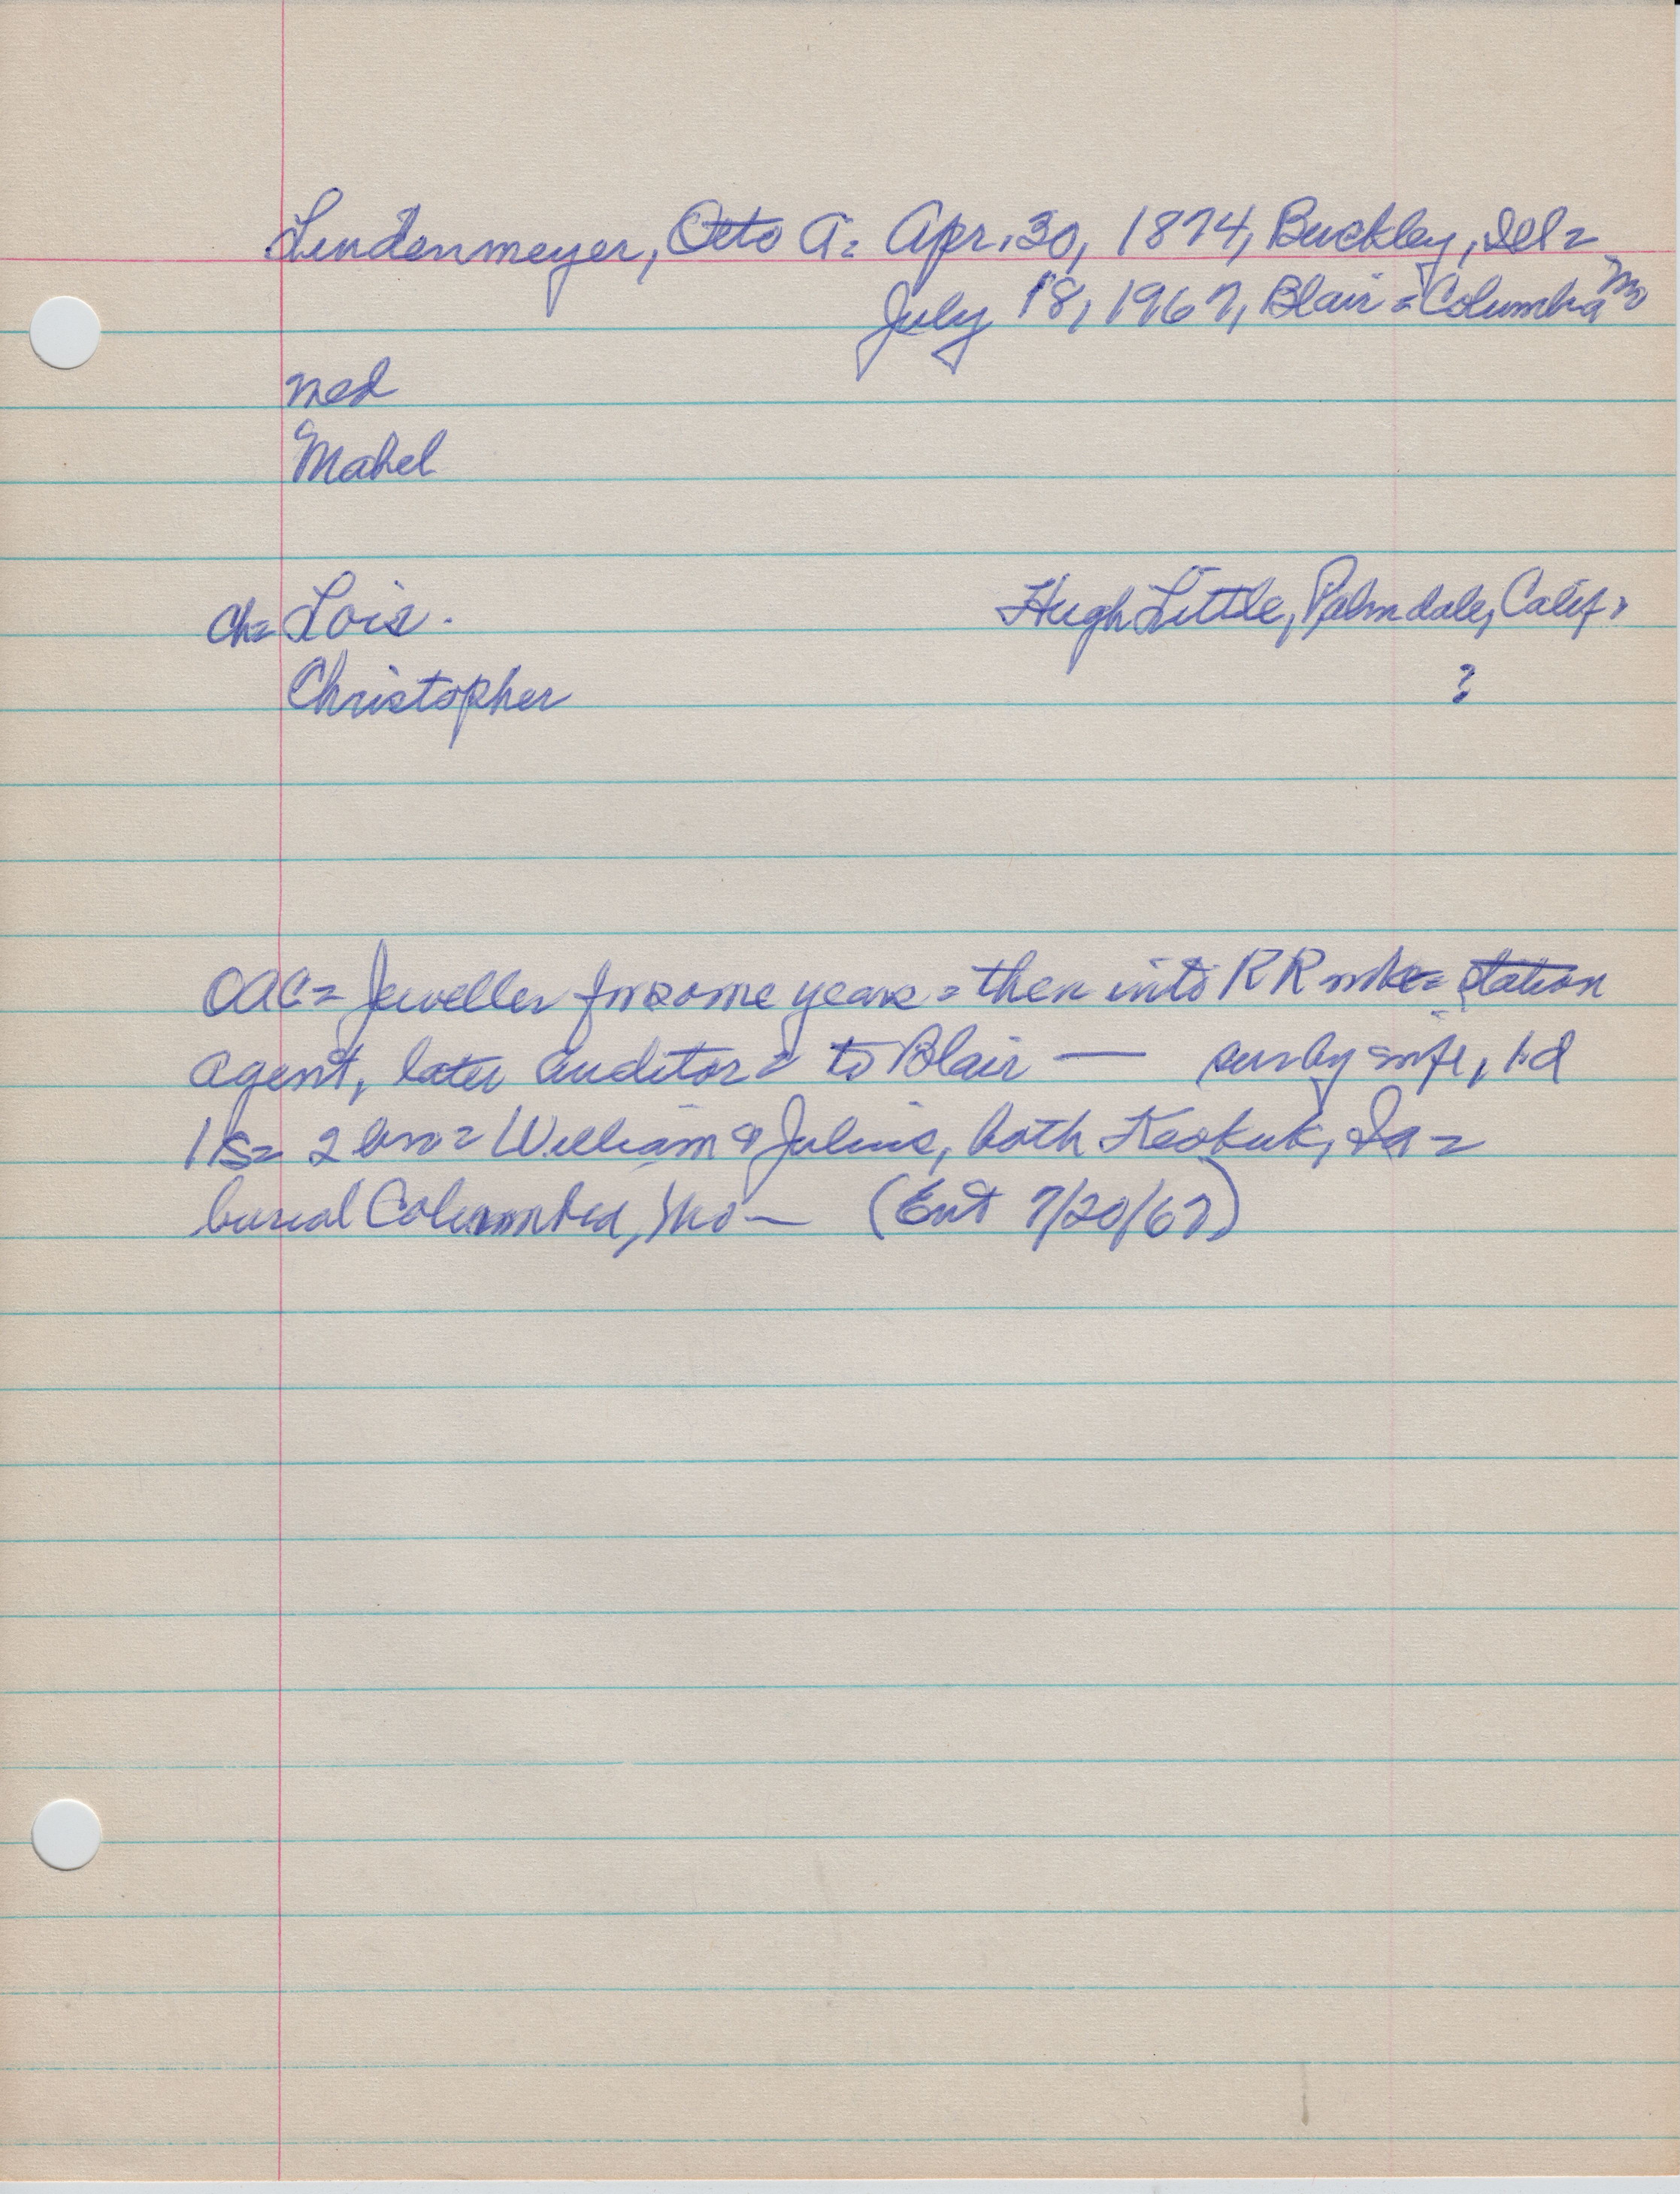 Lindenmeyer, Otto A= Apr. 30, 1874, Buckley, Ill=
July 18, 1967, Blair = Columbia Mo
ned
Mabel
ch= Lois.
Hugh Little, Palmdale, Calif.
Christopher
?
OAC= Jeweller for some years = then into RR = station
agent, later auditor= to Blair — sur by wife, 1 d
1 s= 2 bro= William & Julius, both Keokuk, Ia=
burial Columbia, Mo — (Ent 7/20/67)